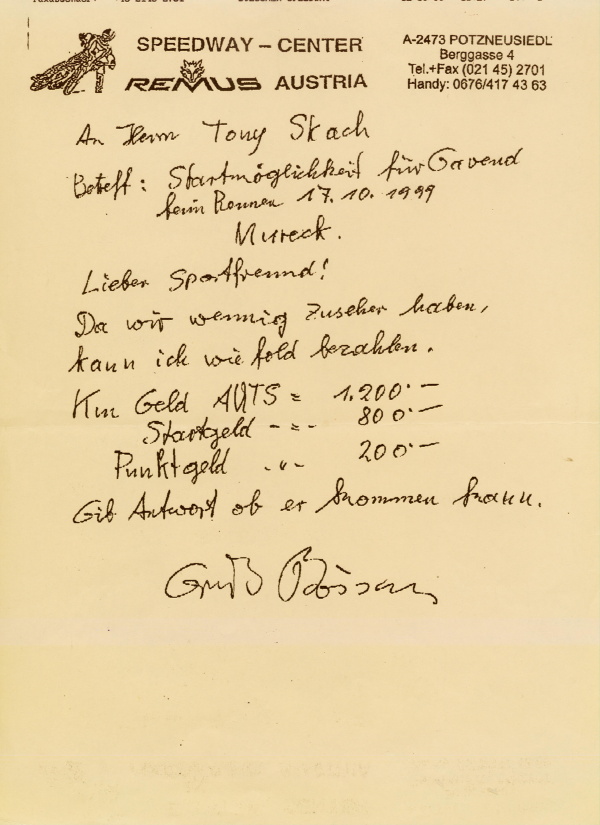 SPEEDWAY – CENTER
REMUS AUSTRIA
A-2473 POTZNEUSIEDL
Berggasse 4
Tel.+Fax (021 45) 2701
Handy: 0676/417 43 63
An Herrn Tony Skach
Betreff: Startmöglichkeit für Gavend
beim Rennen 17.10.1999
Mureck.
Lieber Sportfreund!
Da wir wennig Zuseher haben,
kann ich wie fold bezahlen.
Km Geld AUTS = 1.200.—
Startgeld -"- 800.—
Punktgeld -"- 200.—
Gib Antwort ob er kommen kann.
Gruß